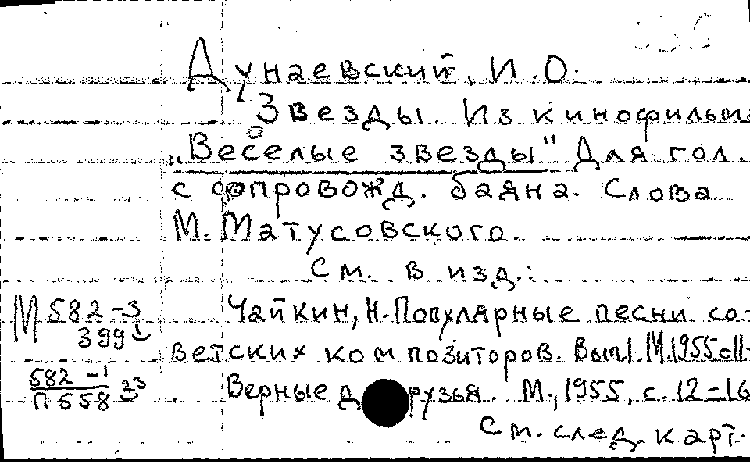 Дунаевский, И.О.
Звезды. Из кинофильма
„Веселые звезды" Для гол.
с сопровожд. баяна. Слова
М. Матусовского.
См. в изд.:
М 582-3
399
Чайкин, Н. Популярные песни со-
ветских композиторов. Вып1. М.1955
582-1
П 558
Верные друзья. М., 1955, с. 12-16
См. след. карт.